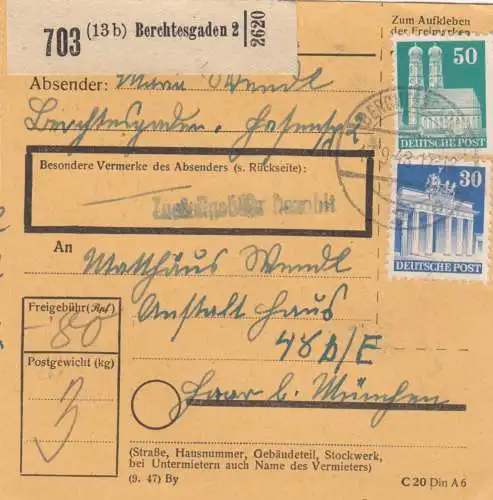 703 (13b) Berchtesgaden 2 2620
Zum Aufkleben
der Freimarken
50
DEUTSCHE POST
Absender: Maria Wendl
Berchtesgaden,
Besondere Vermerke des Absenders (s. Rückseite):
Zustellgebühr bezahlt
30
DEUTSCHE POST
An Matthäus Wendl
Anstalt Haus
48 b/E
Haar b. München
Freigebühr (Rpf)
80
Postgewicht (kg)
3
(Straße, Hausnummer, Gebäudeteil, Stockwerk,
bei Untermietern auch Name des Vermieters)
(9. 47) By
C 20 Din A 6